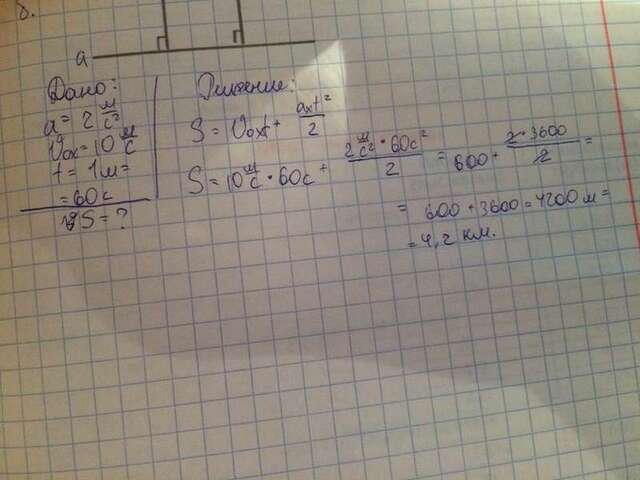 a
Дано:
a = 2 м/с²
V₀ₓ = 10 м/с
t = 1м =
= 60с
S = ?
Решение:
S = V₀ₓt + aₓt²/2
S = 10 м/с · 60с + 2 м/с² · 60с²/2 = 600 + 2 · 3600/2 =
= 600 + 3600 = 4200 м =
= 4,2 км.